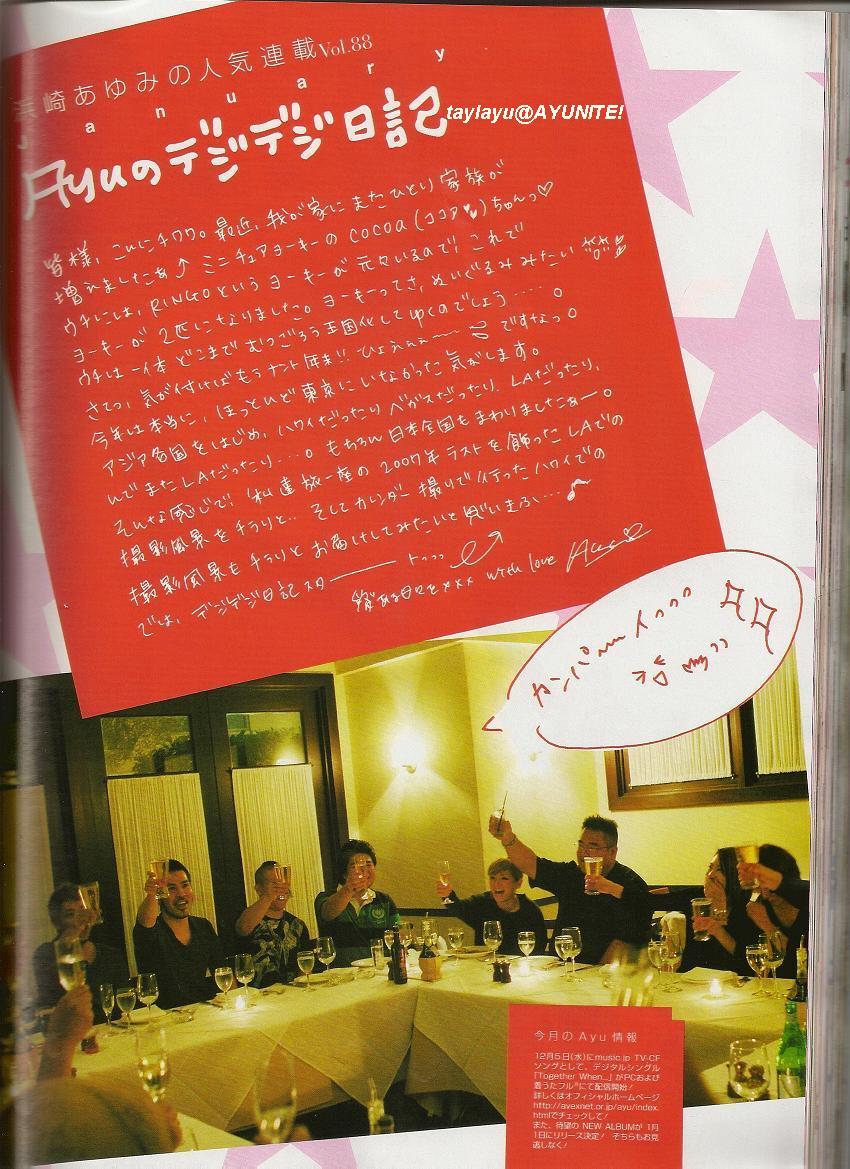 浜崎あゆみの人気連載Vol.88
January
Ayuのデジデジ日記
taylayu@AYUNITE!
皆様、こんにチワワ。最近、我が家にまたひとり家族が
増えましたあ↑ミニチュアヨーキーのCOCOA(ココア♥)ちゅんっ♡
ウチには、RINGOというヨーキーが元々いるので、これで
ヨーキーが2匹になりました。ヨーキーってさ、ぬいぐるみみたい
ウチは一体どこまでむつごろう王国化してゆくのでしょう……。
さてっ、気が付けばもうナント年末!!ひょえぇぇ〜〜ですなっ。
今年は本当に、ほっとんど東京にいなかった気がします。
アジア各国をはじめ、ハワイだったりベガスだったり、LAだったり、
んでまたLAだったり…。もちろん日本全国もまわりましたぁー。
そんな感じで、私達旅一座の2007年ラストを飾ったLAでの
撮影風景をチラリと‥そしてカレンダー撮りで行ったハワイでの
撮影風景もチラリとお届けしてみたいと思いまふ…♪
では、デジデジ日記スタ———トっっっ
愛ある日々を××× with love Ayu
カンパ〜〜イっっっ
今月のAyu情報
12月5日(水)にmusic.jp TV-CF
ソングとして、デジタルシングル
「Together When...」がPCおよび
着うたフル®にて配信開始!
詳しくはオフィシャルホームページ
http://avexnet.or.jp/ayu/index.
htmlでチェックして!
また、待望の NEW ALBUMが 1月
1日にリリース決定! そちらもお見
逃しなく!